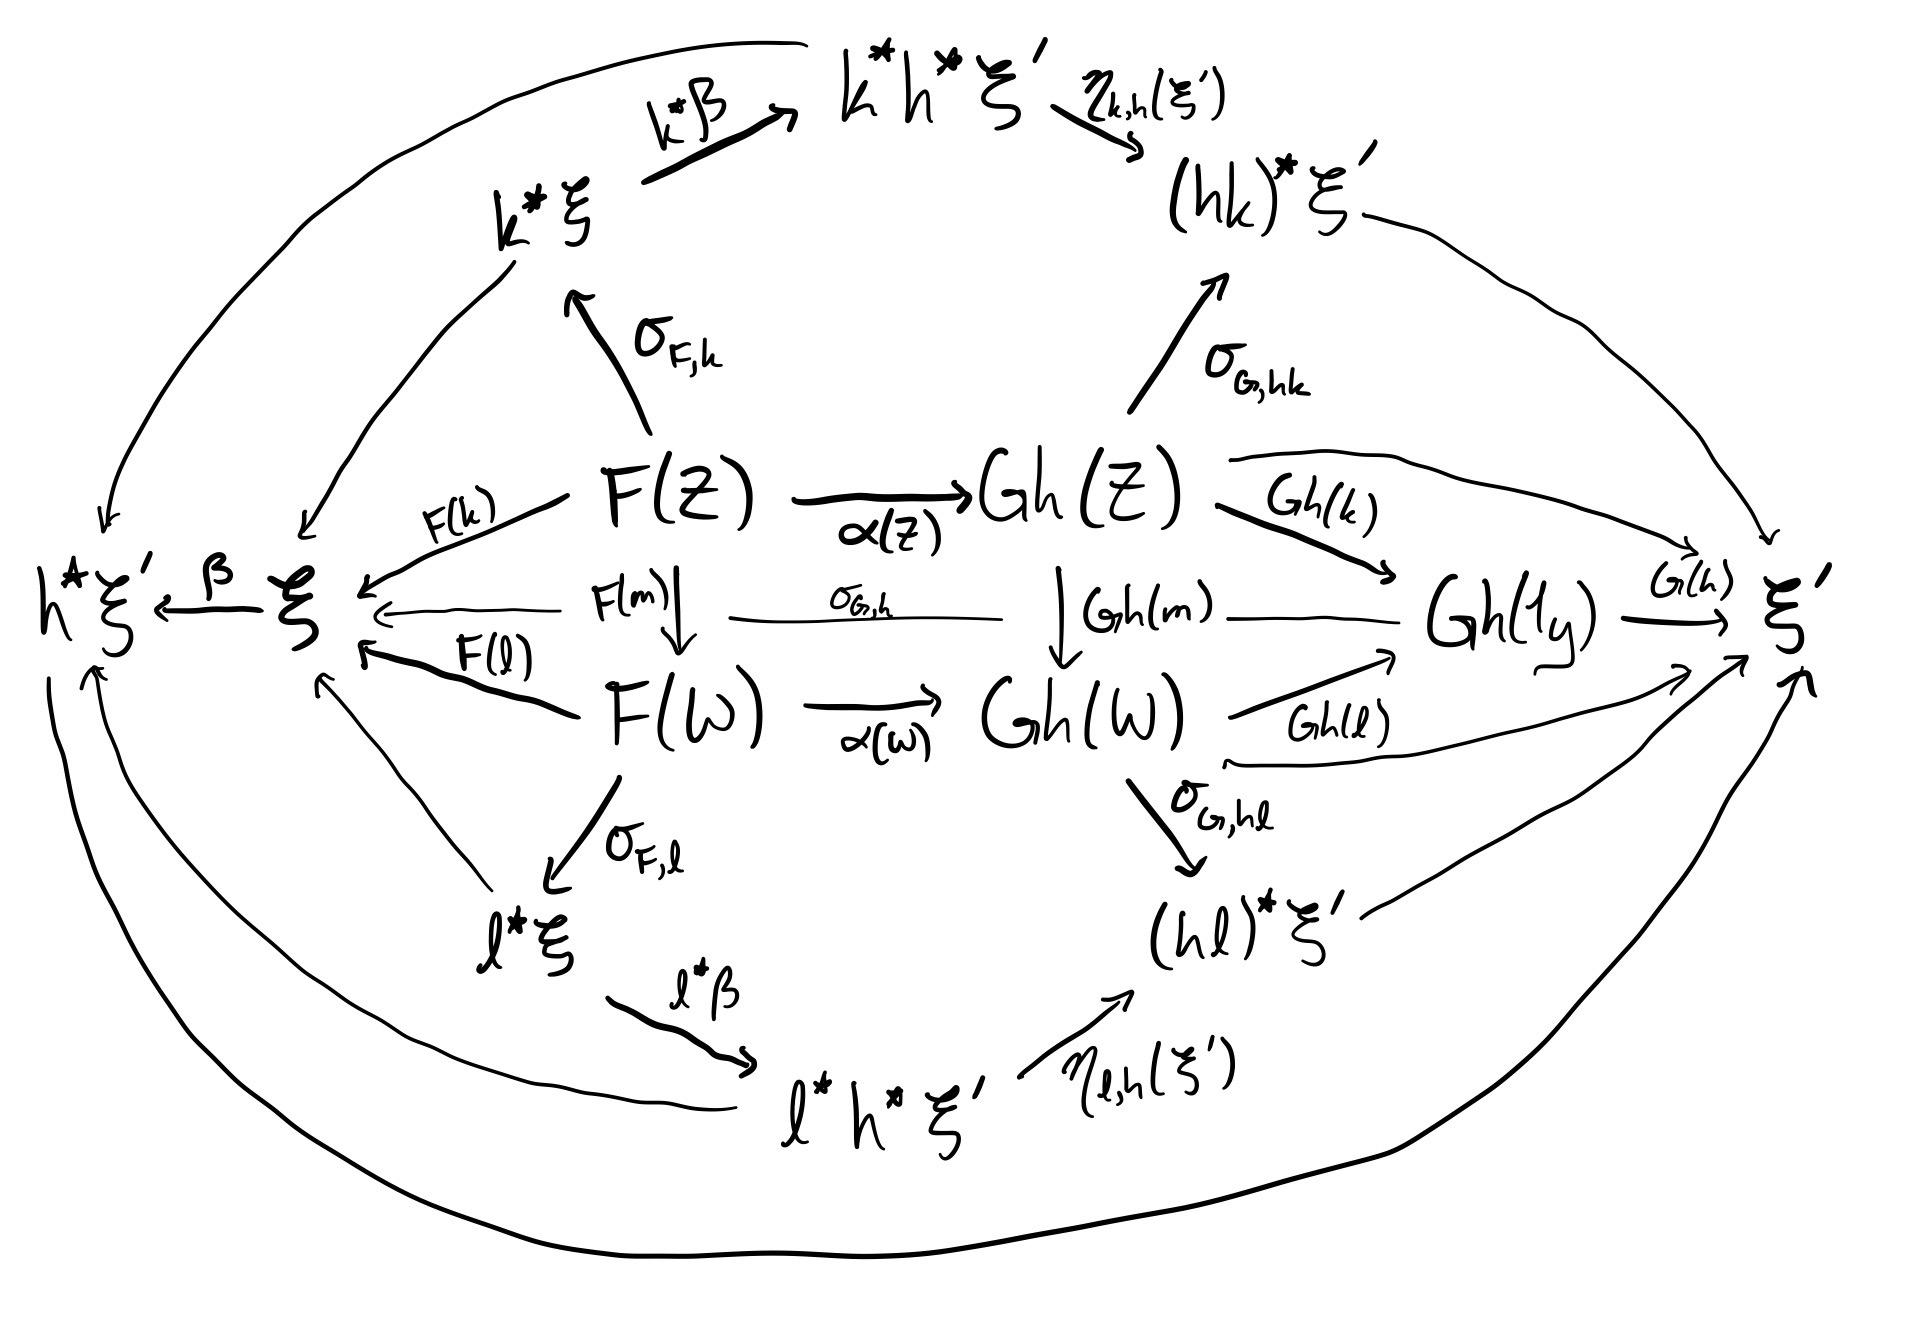 k*h*ξ′
η_{k,h}(ξ′)
k*β
(hk)*ξ′
k*ξ
σ_{F,k}
σ_{G,hk}
F(Z)
Gh(Z)
F(k)
α(Z)
Gh(k)
h*ξ′
β
ξ
F(m)
σ_{G,h}
Gh(m)
Gh(1_y)
G(h)
ξ′
F(l)
F(W)
α(W)
Gh(W)
Gh(l)
σ_{F,l}
σ_{G,hl}
l*ξ
(hl)*ξ′
l*β
l*h*ξ′
η_{l,h}(ξ′)